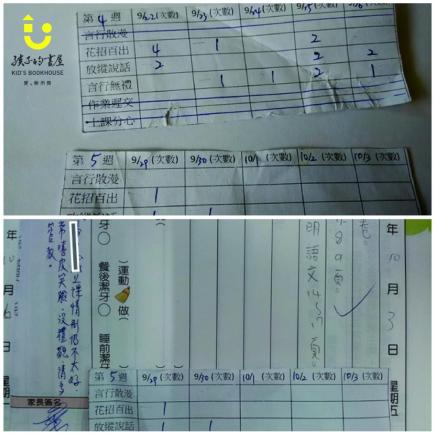 孩子的書屋
KID'S BOOKHOUSE
愛、無所畏
第4週 9/22(次數) 9/23(次數) 9/24(次數) 9/25(次數) 9/26(次數)
言行散漫
花招百出 4 1 2 2
放縱說話 2 2 2
言行無禮 1 1 2 1
作業遲交
上課分心
第5週 9/29(次數) 9/30(次數) 10/1(次數) 10/2(次數) 10/3(次數)
言行散漫
花招百出 1
放縱說話 1 1
年10月3日 星期五
卷
朗語文14~17頁。
運動 做
餐後潔牙
睡前潔牙
年10月6日 星期一
上課情形仍不太好
常嘻皮笑臉、沒禮貌,請多
管教。
家長簽名
第5週 9/29(次數) 9/30(次數) 10/1(次數) 10/2(次數) 10/3(次數)
言行散漫
花招百出 1
放縱說話 1 1